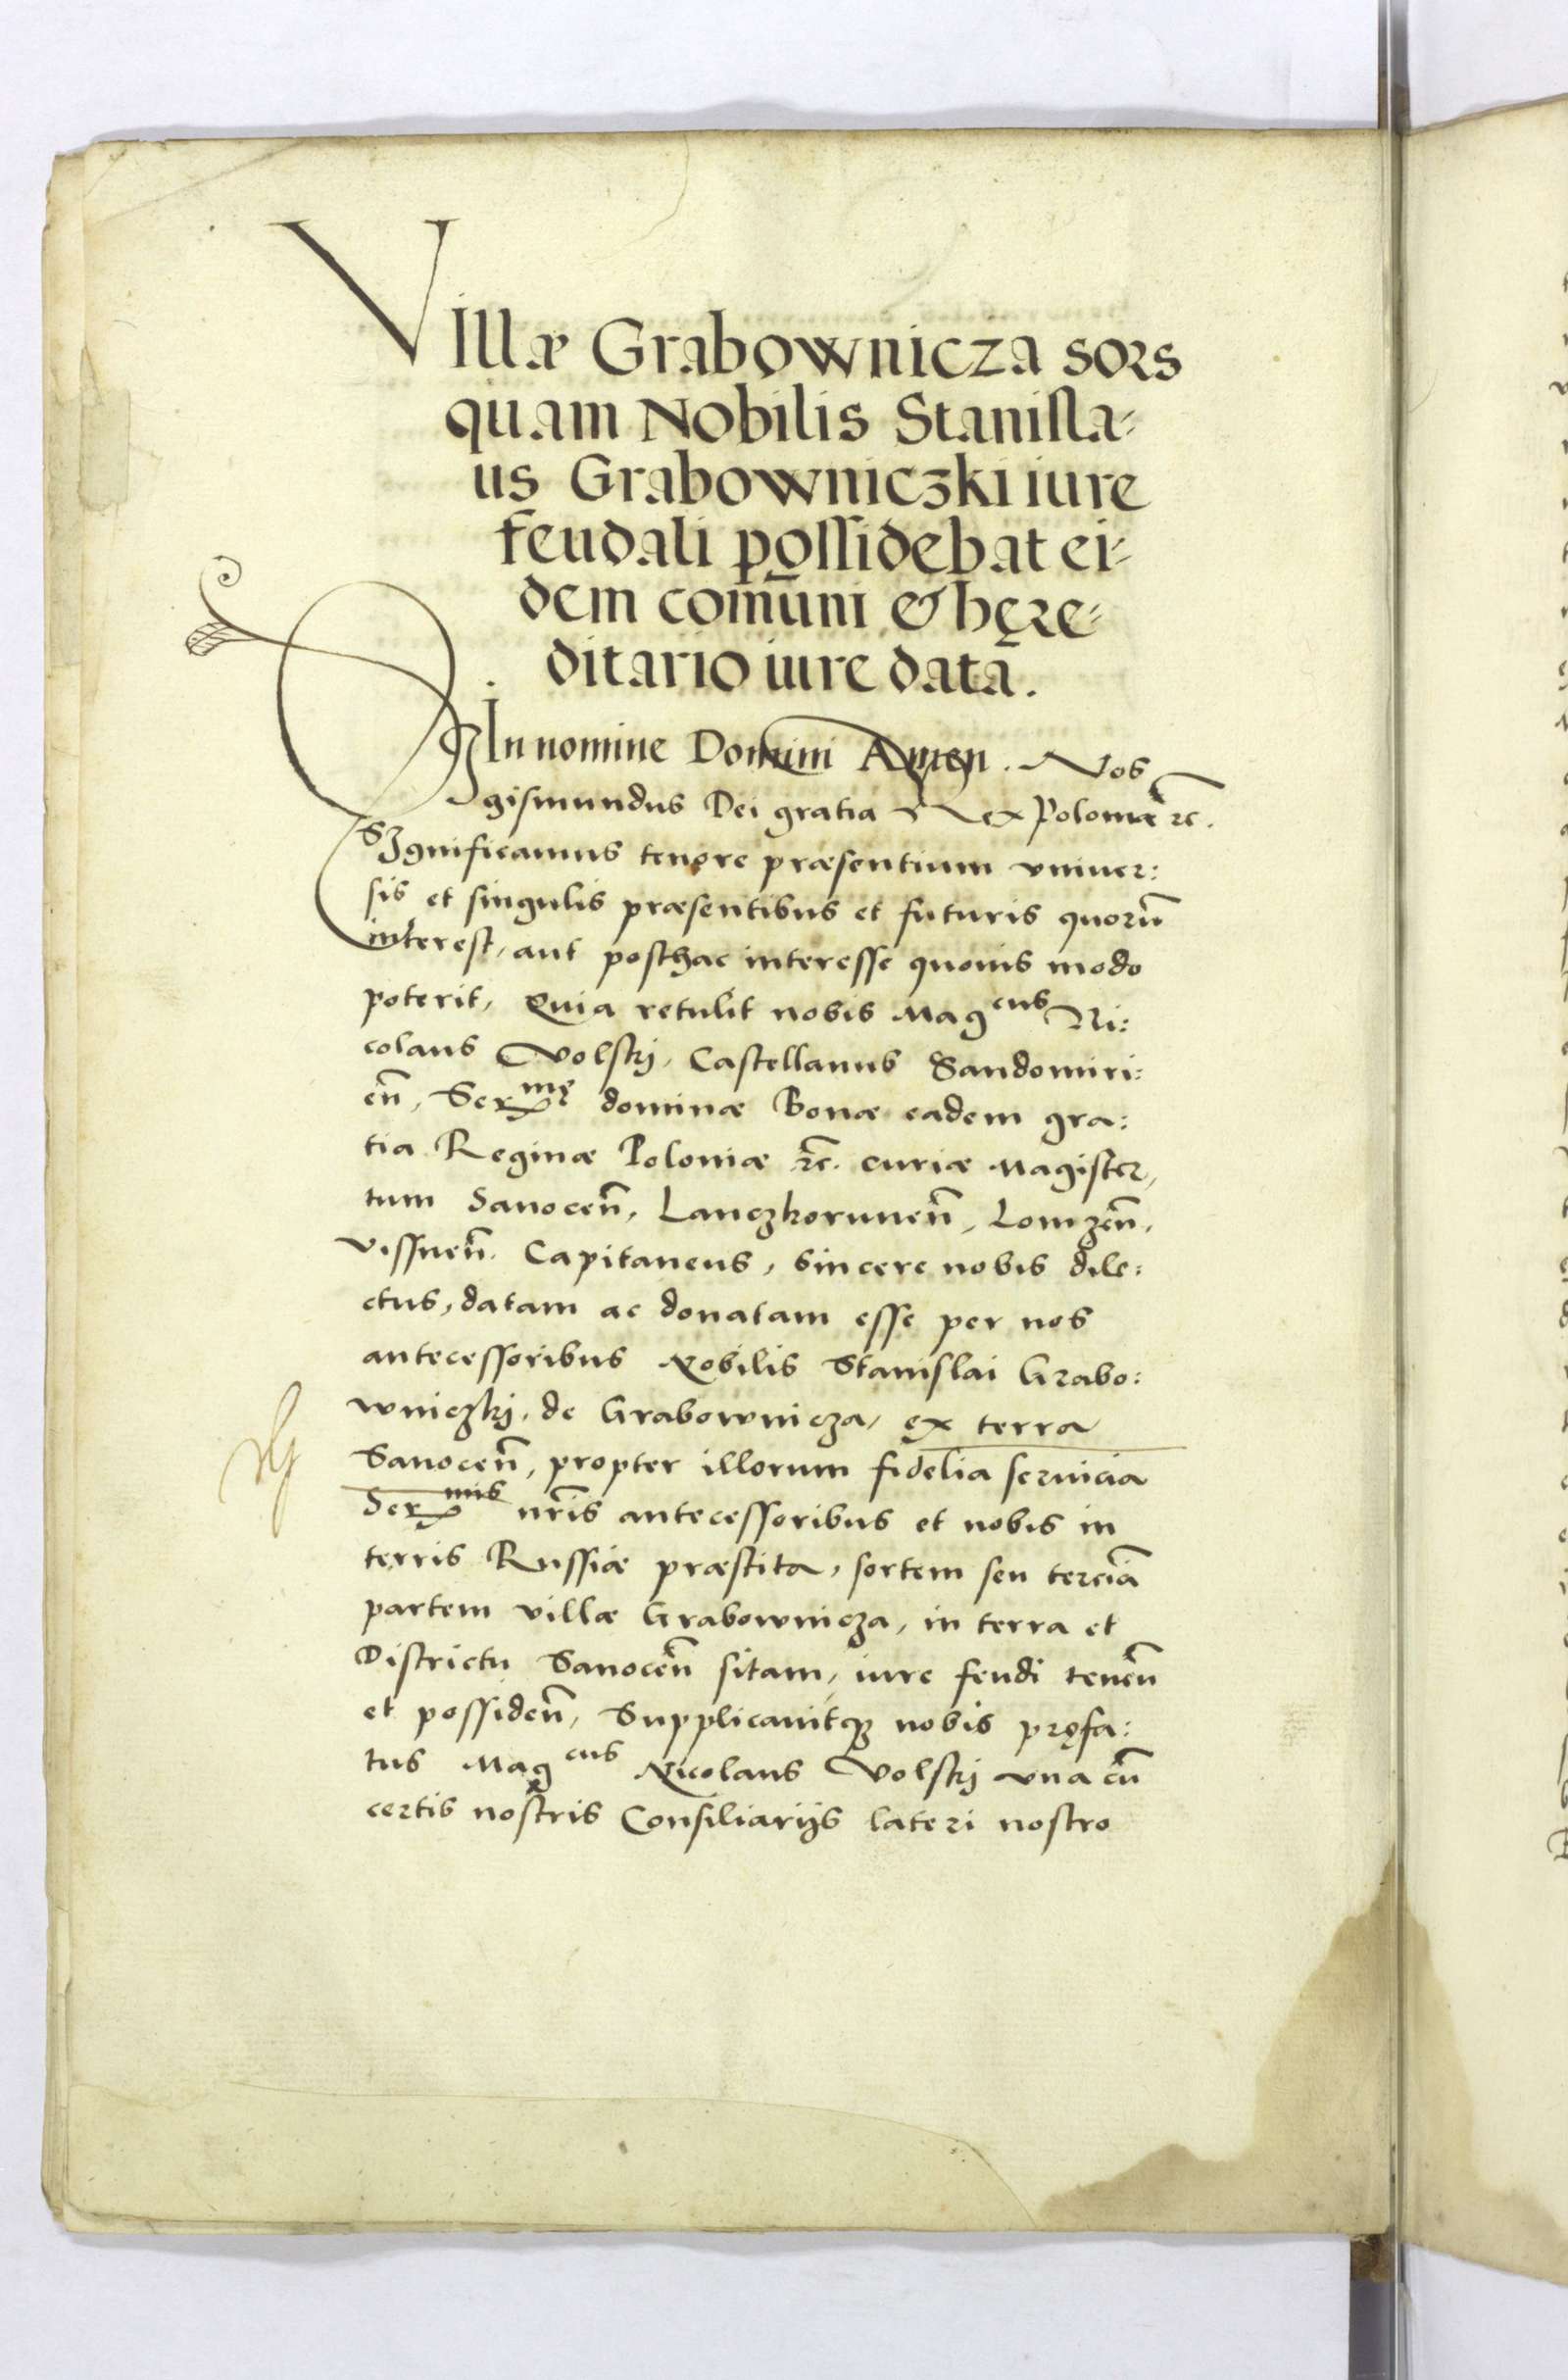 Villæ Grabownicza sors
quam Nobilis Stanisla⸗
us Grabowniczki iure
feudali possidebat ei⸗
dem com̄uni & hęre⸗
ditario iure data.
In nomine Domini Amen. Nos
Sigismundus Dei gratia Rex Poloniæ ꝛc.
Significamus tenore præsentium vniuer:
sis et singulis præsentibus et futuris quorū
interest, aut posthac interesse quouis modo
poterit, Quia retulit nobis Mag cus Ni:
colaus Volskj, Castellanus Sandomiri:
en̄, Ser mę dominæ Bonæ eadem gra:
tia Reginæ Poloniæ ꝛc. curiæ Magister,
tum Sanocen̄, Lanczkorunen̄, Lomzen̄,
vissnen̄ Capitaneus, sincere nobis dile:
ctus, datam ac donatam esse per nos
antecessoribus Nobilis Stanislai Grabo:
wniczkj, de Grabownicza, ex terra
Sanocen̄, propter illorum fidelia seruicia
Ser mis nr̄is antecessoribus et nobis in
terris Russiæ præstita, sortem seu terciā
partem villæ Grabownicza, in terra et
Districtu Sanocen̄ sitam, iure feudi tenen̄
et possiden̄, Supplicauitqꝫ nobis pręfa:
tus Mag cus Nicolaus Volskj vna cū
certis nostris Consiliarijs lateri nostro